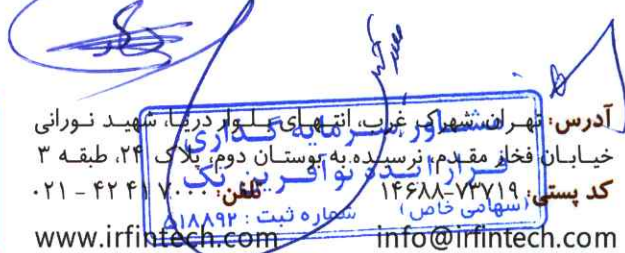 آدرس: تهران، شهرک غرب، انتهای بلوار دریا، شهید نورانی
خیابان فخار مقدم، نرسیده به بوستان دوم، پلاک ۲۴، طبقه ۳
کد پستی: ۷۳۷۱۹-۱۴۶۸۸ تلفن: ۴۲۴۱۷۰۰۰ - ۰۲۱
www.irfintech.com info@irfintech.com
مشاور سرمایه گذاری
فرازاینده نوآفرین یک
(سهامی خاص) شماره ثبت: ۵۱۸۸۹۲